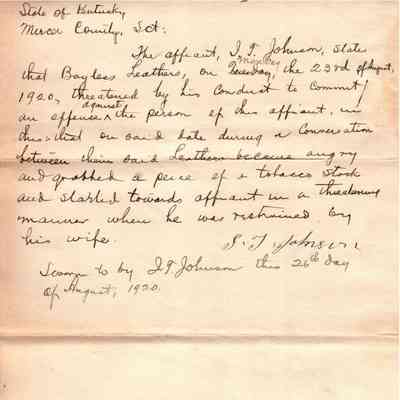 State of Kentucky,
Mercer County, Sct:
The affiant, I. T. Johnson, state
that Bayless Leathers, on Monday, the 23rd of August,
1920, threatened by his conduct to commit
an offense against the person of this affiant, in
this: that on said date during a conversation
between them said Leathers became angry
and grabbed a peice of a tobacco stick
and started towards affiant in a threatening
manner when he was restrained by
his wife.
I. T. Johnson
Sworn to by I. T. Johnson this 26th day
of August, 1920.